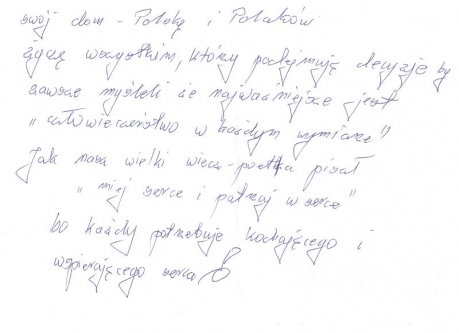 swój dom - Polskę i Polaków
życzę wszystkim, którzy podejmują decyzje by
zawsze myśleli że najważniejsze jest
"człowieczeństwo w każdym wymiarze"
Jak nasz wielki wieszcz-poeta pisał
"miej serce i patrzaj w serce"
bo każdy potrzebuje kochającego i
wspierającego serca